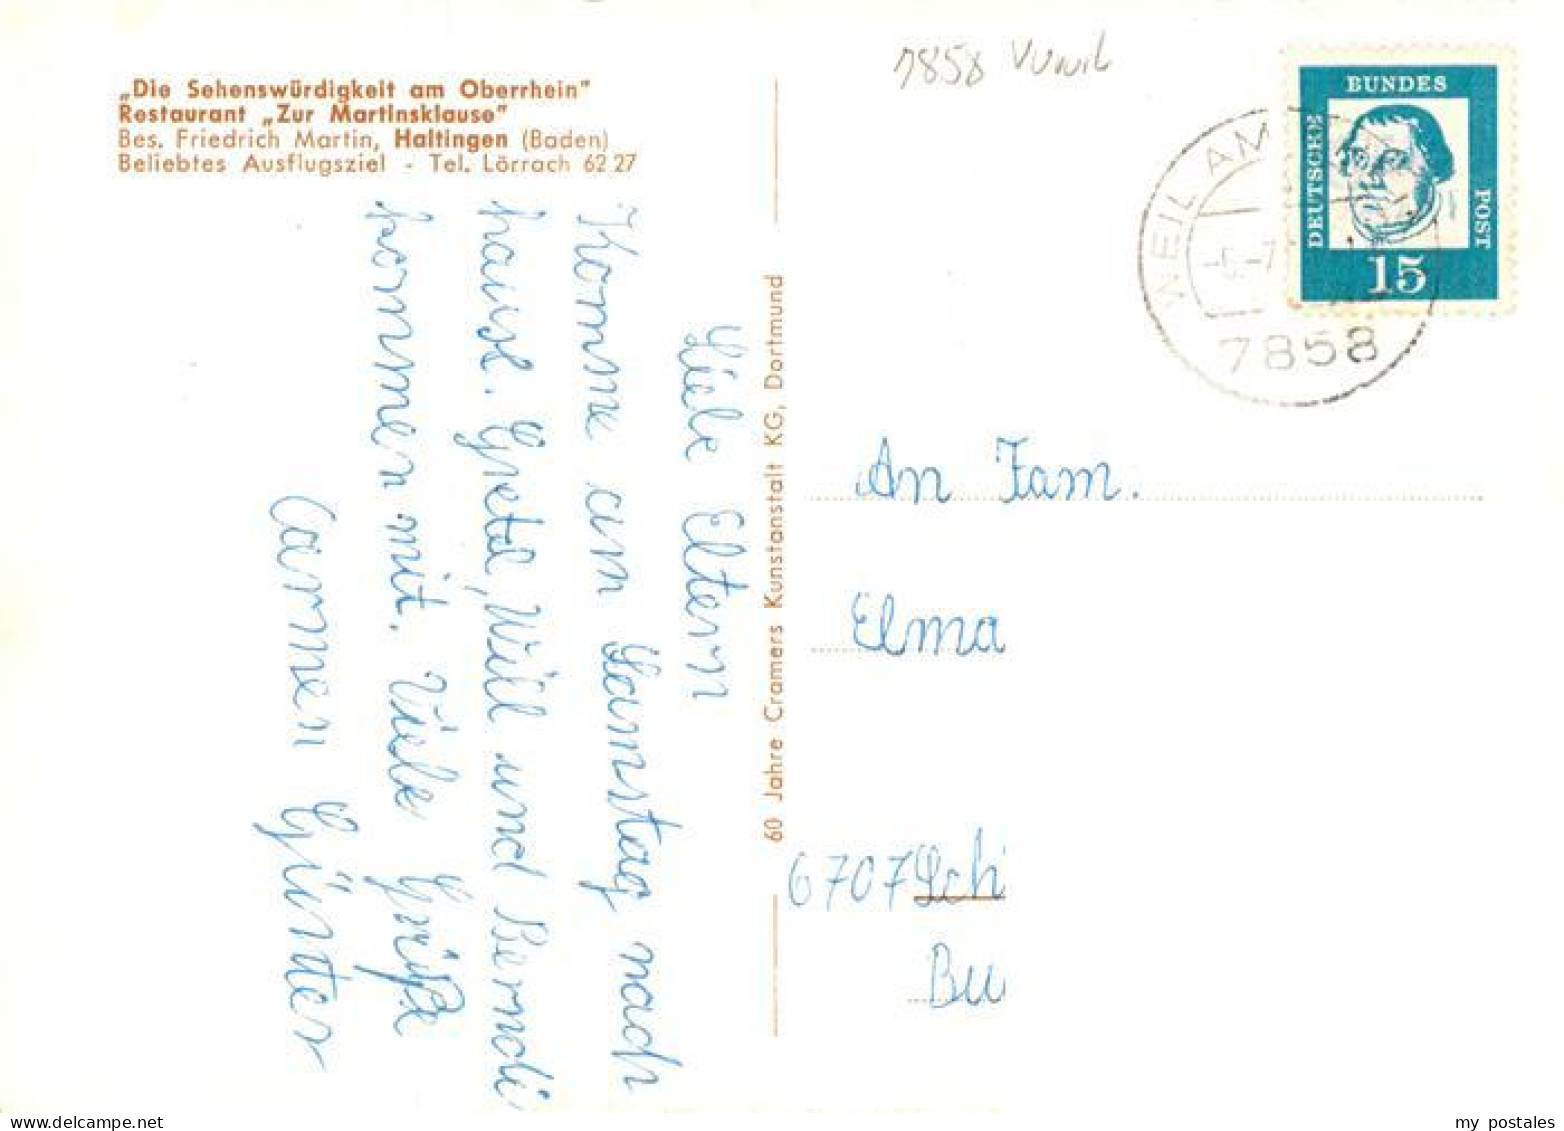 „Die Sehenswürdigkeit am Oberrhein"
Restaurant „Zur Martinsklause"
Bes. Friedrich Martin, Haltingen (Baden)
Beliebtes Ausflugsziel - Tel. Lörrach 62 27
Liebe Eltern
Komme am Samstag nach
hause. Gretel, Willi und Berndi
kommen mit. Viele Grüße
Carmen Günter
60 Jahre Cramers Kunstanstalt KG, Dortmund
7858
WEIL AM
7858
DEUTSCHE
BUNDES
POST
15
An Fam.
Elma
6707 Sch
Bu
my postales